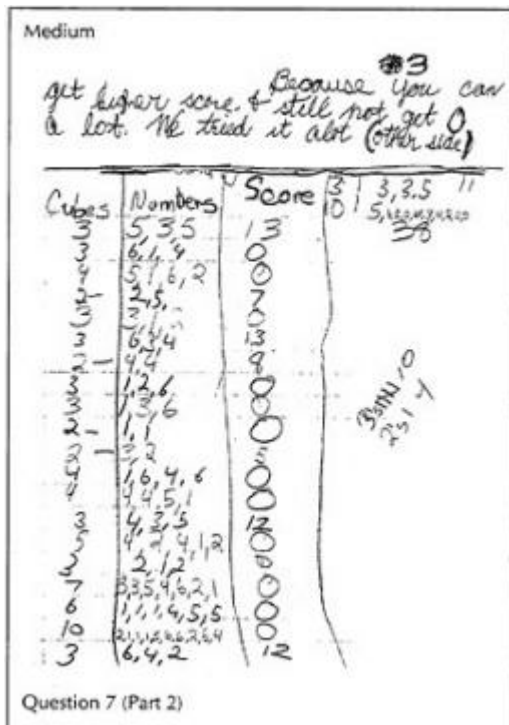 Medium
#3
Because you can
get higher score. & still not get 0
a lot. We tried it alot (other side)
Cubes Numbers Score 3 3,3,5 11
10 5,
38
3 5,3,5 13
3 6,1,4 0
4 5,1,6,2 0
2 2,5, 7
3 0
3 6,3,4 13
2 4,4 8
3 1,2,6 0
3 1,3,6 0
2 1,1 0
2 3,2 5
4 1,6,4,6 0
4 4,4,5,1 0
3 4,3,5 12
5 4,2,4,1,2 0
3 2,1,2 0
7 3,3,5,4,6,2,1 0
6 1,1,1,4,5,5 0
10 0
3 6,4,2 12
3's 10
2's 1 4
Question 7 (Part 2)